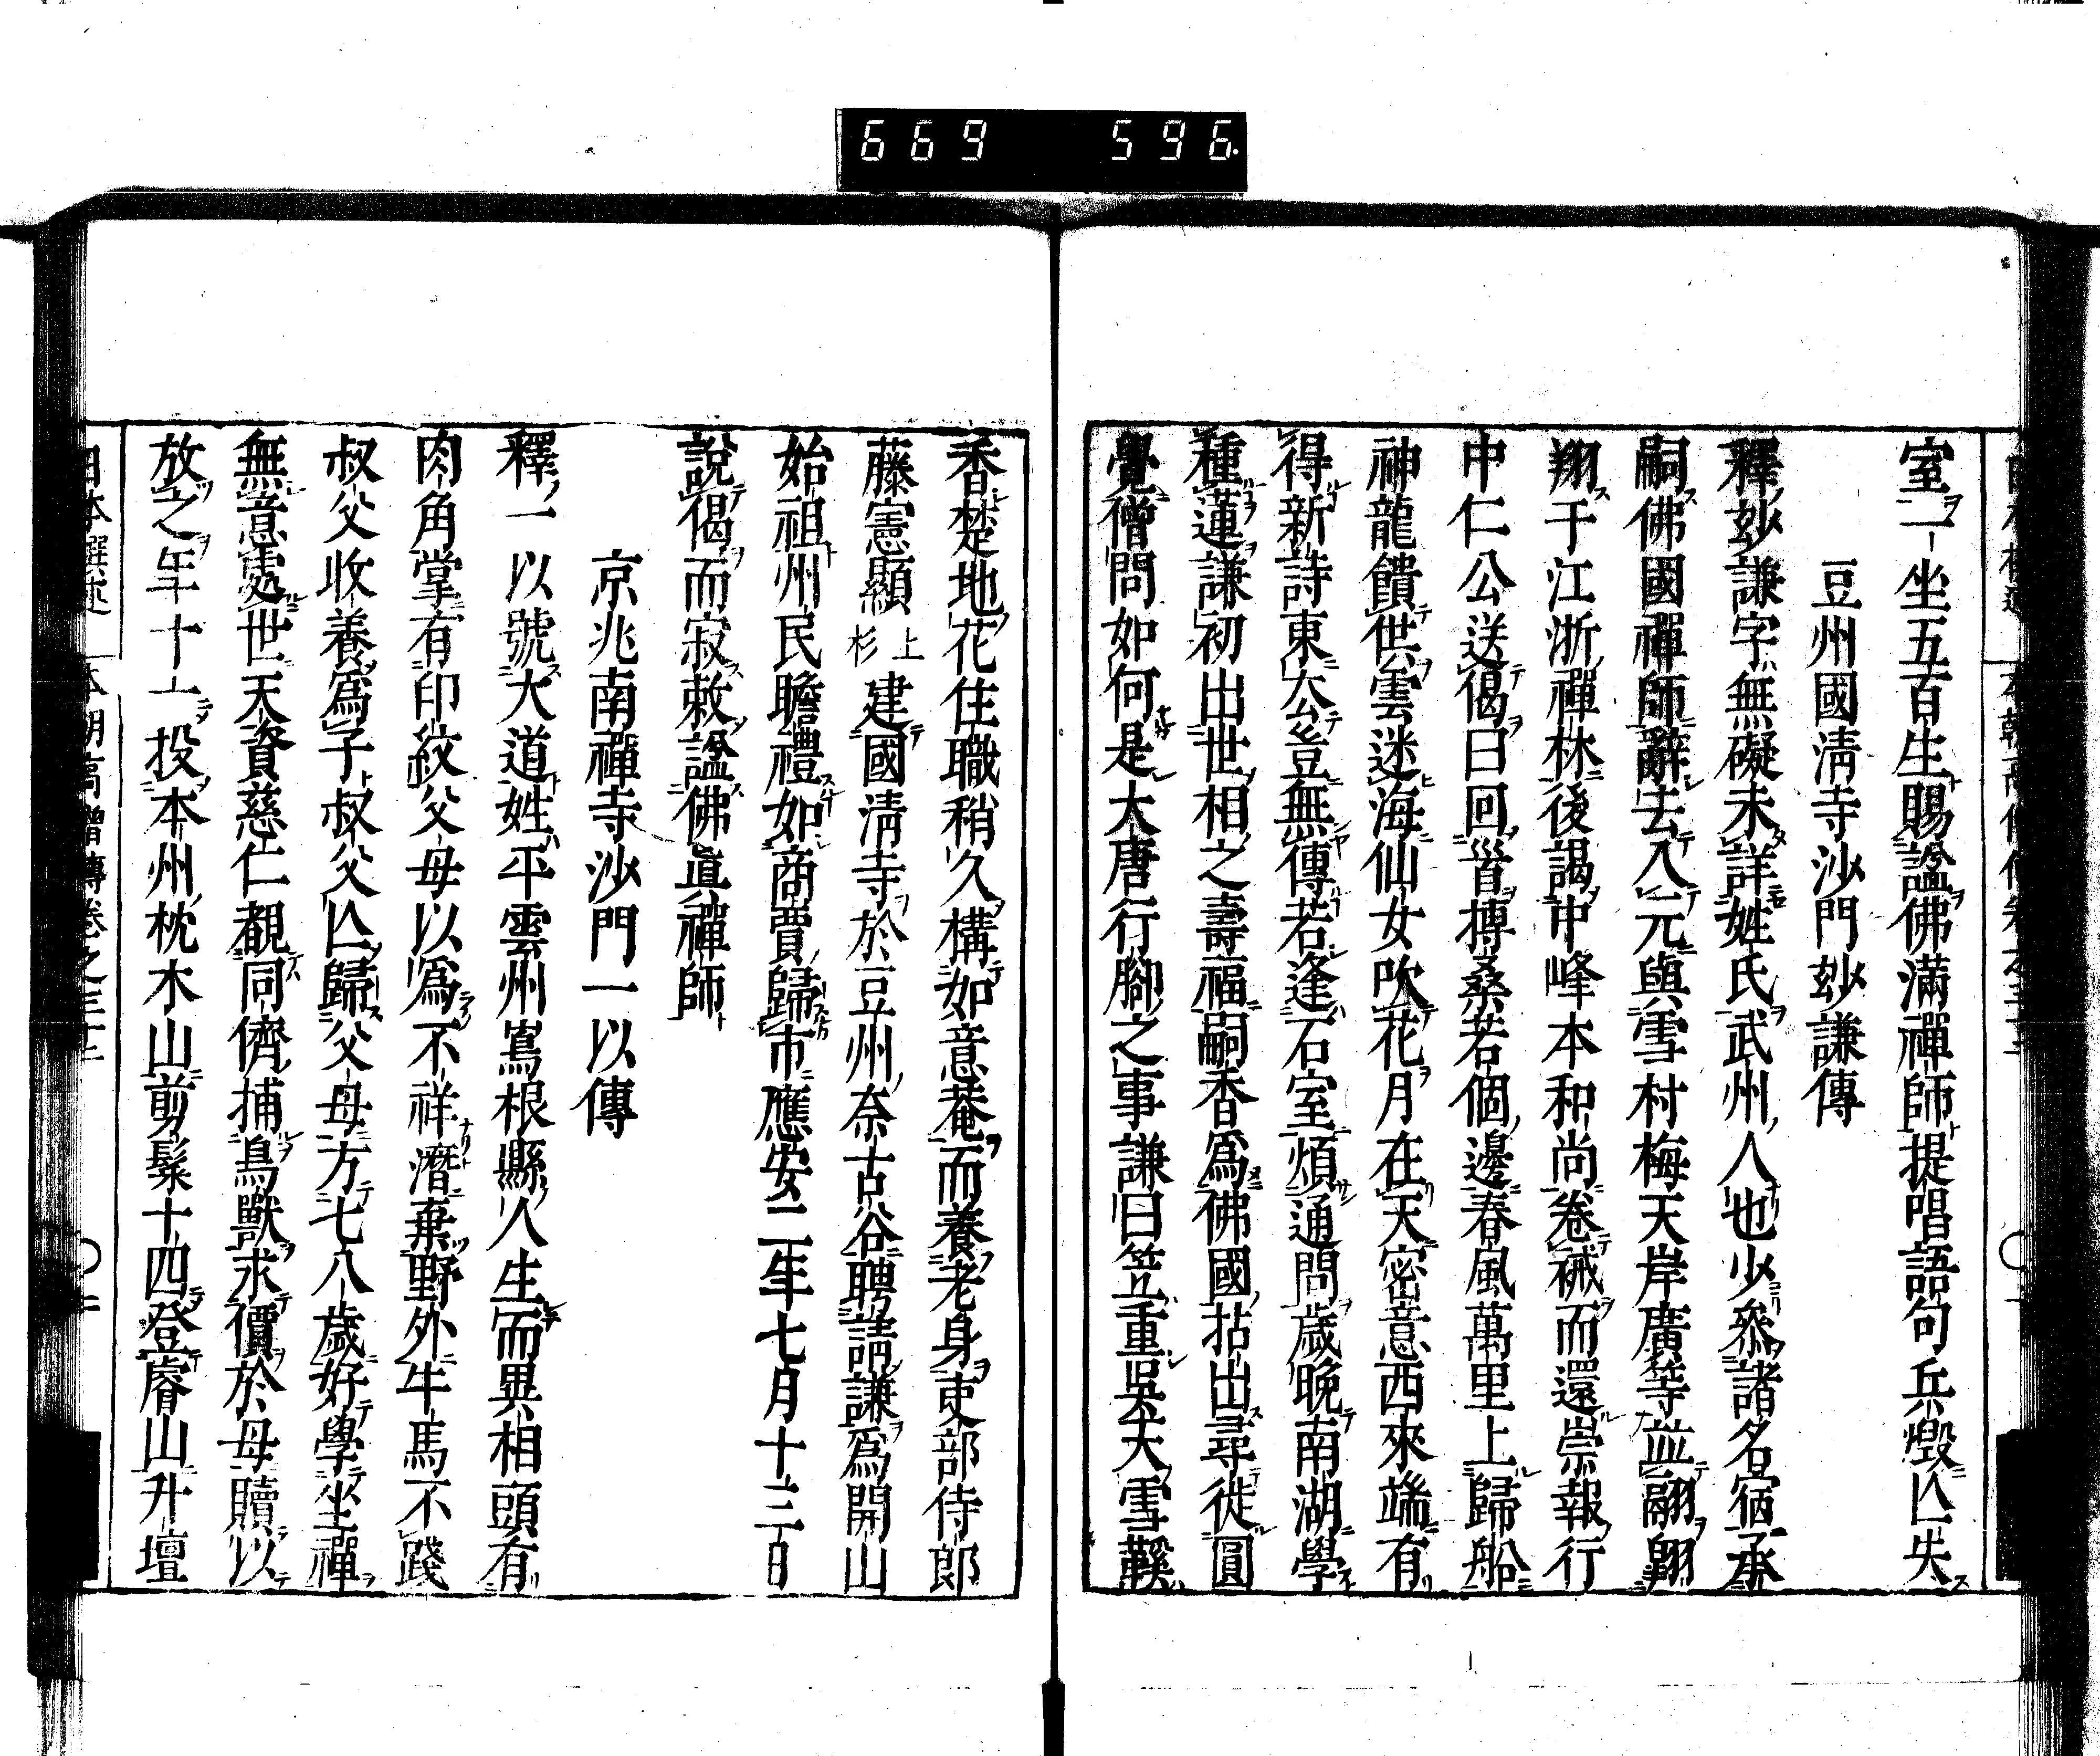 669 596.
室一坐五百生賜諡佛滿禪師提唱語句兵燬亾失
豆州國清寺沙門玅謙傳
釋玅謙字無礙未詳姓氏武州人也少叅諸名宿承
嗣佛國禪師辭去入元與雪村梅天岸廣等並翮翺
翔于江浙禪林後謁中峰本和尚卷裓而還崇報行
中仁公送偈曰回首搏桑若個邊春風萬里上歸船
神龍饋供雲迷海仙女吹花月在天密意西來端有
得新詩東去豈無傳若逢石室煩通問歲晚南湖學
種蓮謙初出世相之壽福嗣香爲佛國拈出尋徙圓
覺僧問如何是大唐行腳之事謙曰笠重吳天雪鞵
香楚地花住職稍久構如意菴而養老身吏部侍郎
藤憲顯上杉建國清寺於豆州奈古谷聘請謙爲開山
始祖州民瞻禮如商賈歸市應安二年七月十三日
說偈而寂敕諡佛眞禪師
京兆南禪寺沙門一以傳
釋一以號大道姓平雲州嶌根縣人生而異相頭有
肉角掌有印紋父母以爲不祥潛棄野外牛馬不踐
叔父收養爲子叔父亾歸父母方七八歲好學坐禪
無意處世天資慈仁覩同儕捕鳥獸求價於母贖以
放之年十一投本州枕木山剪髮十四登睿山升壇
日本撰述 本朝高僧傳卷之三十二 〇二